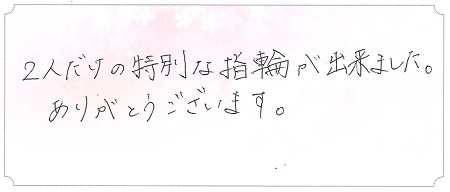 2人だけの特別な指輪が出来ました。
ありがとうございます。